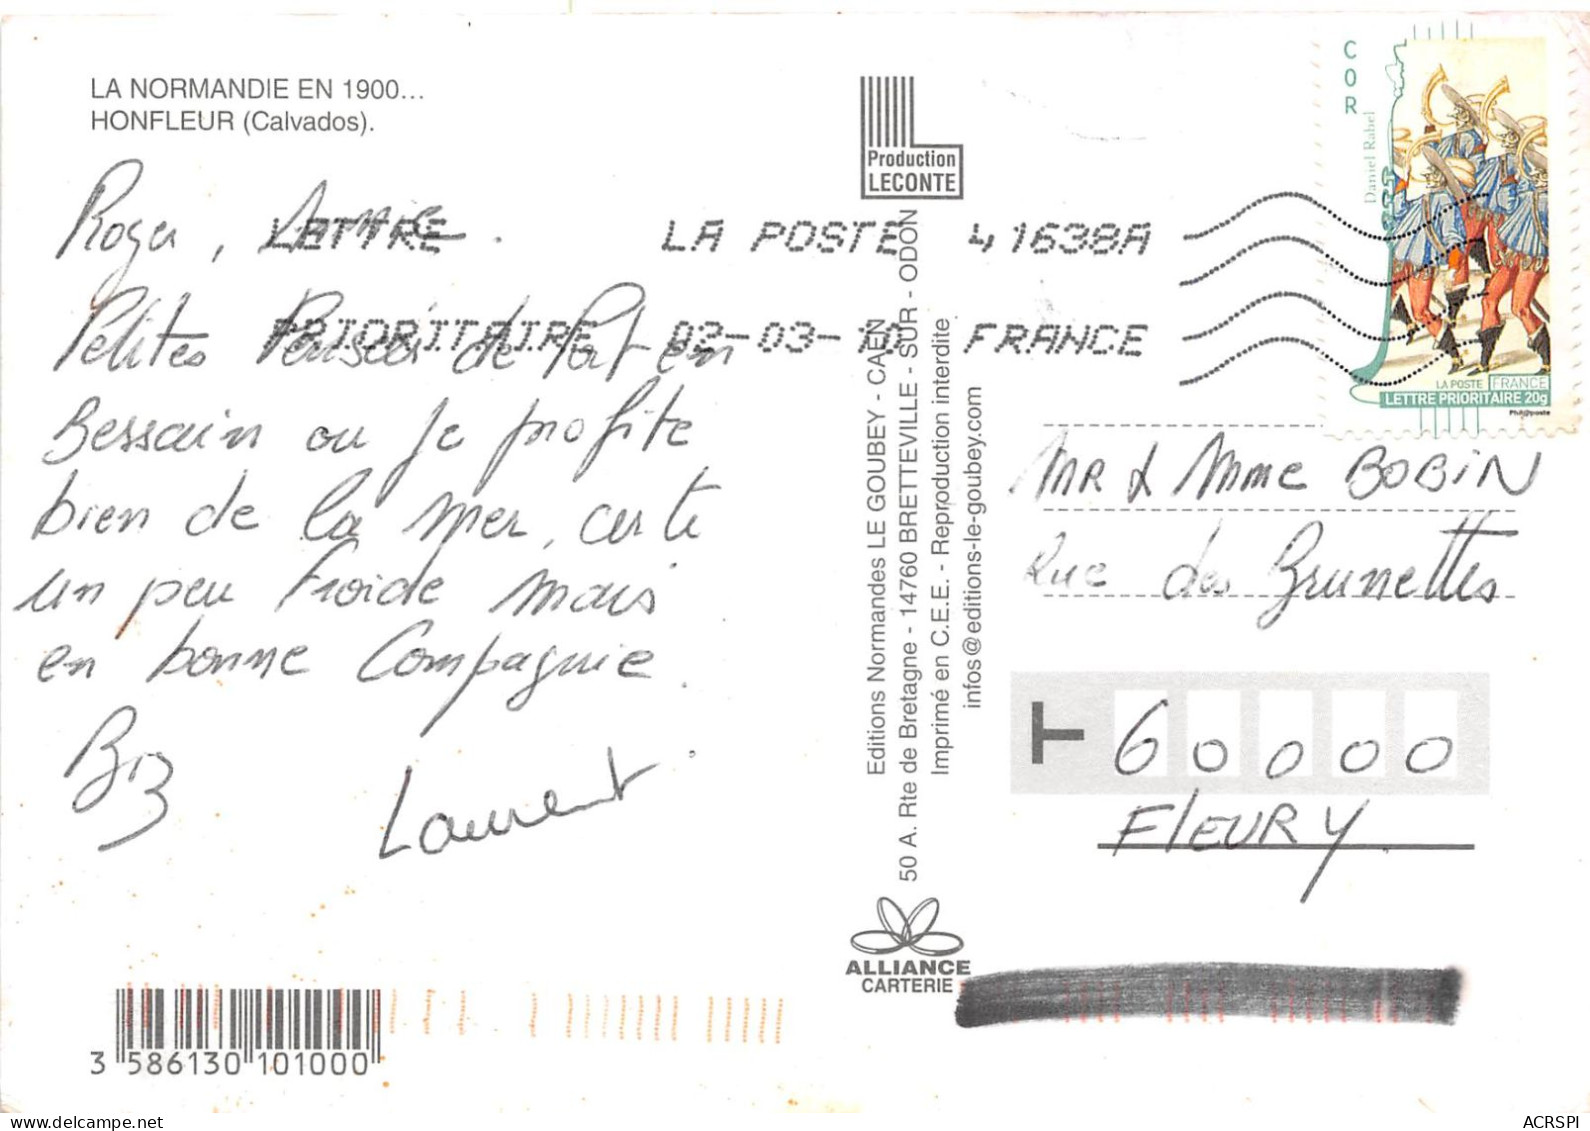 LA NORMANDIE EN 1900...
HONFLEUR (Calvados).
Roger,
Petites Pensées de Port en
Bessain ou je profite
bien de la mer, certe
un peu froide mais
en bonne Compagnie.
Biz
Laurent
3 586130 101000
LETTRE LA POSTE 41638A
PRIORITAIRE 02-03-10 FRANCE
Production
LECONTE
Editions Normandes LE GOUBEY - CAEN
50 A. Rte de Bretagne - 14760 BRETTEVILLE - SUR - ODON
Imprimé en C.E.E. - Reproduction interdite
infos@editions-le-goubey.com
ALLIANCE
CARTERIE
COR
Daniel Rabel
LA POSTE FRANCE
LETTRE PRIORITAIRE 20g
Phil@poste
MR & Mme BOBIN
Rue des Brunettes
T 60000
FLEURY.
ACRSPI